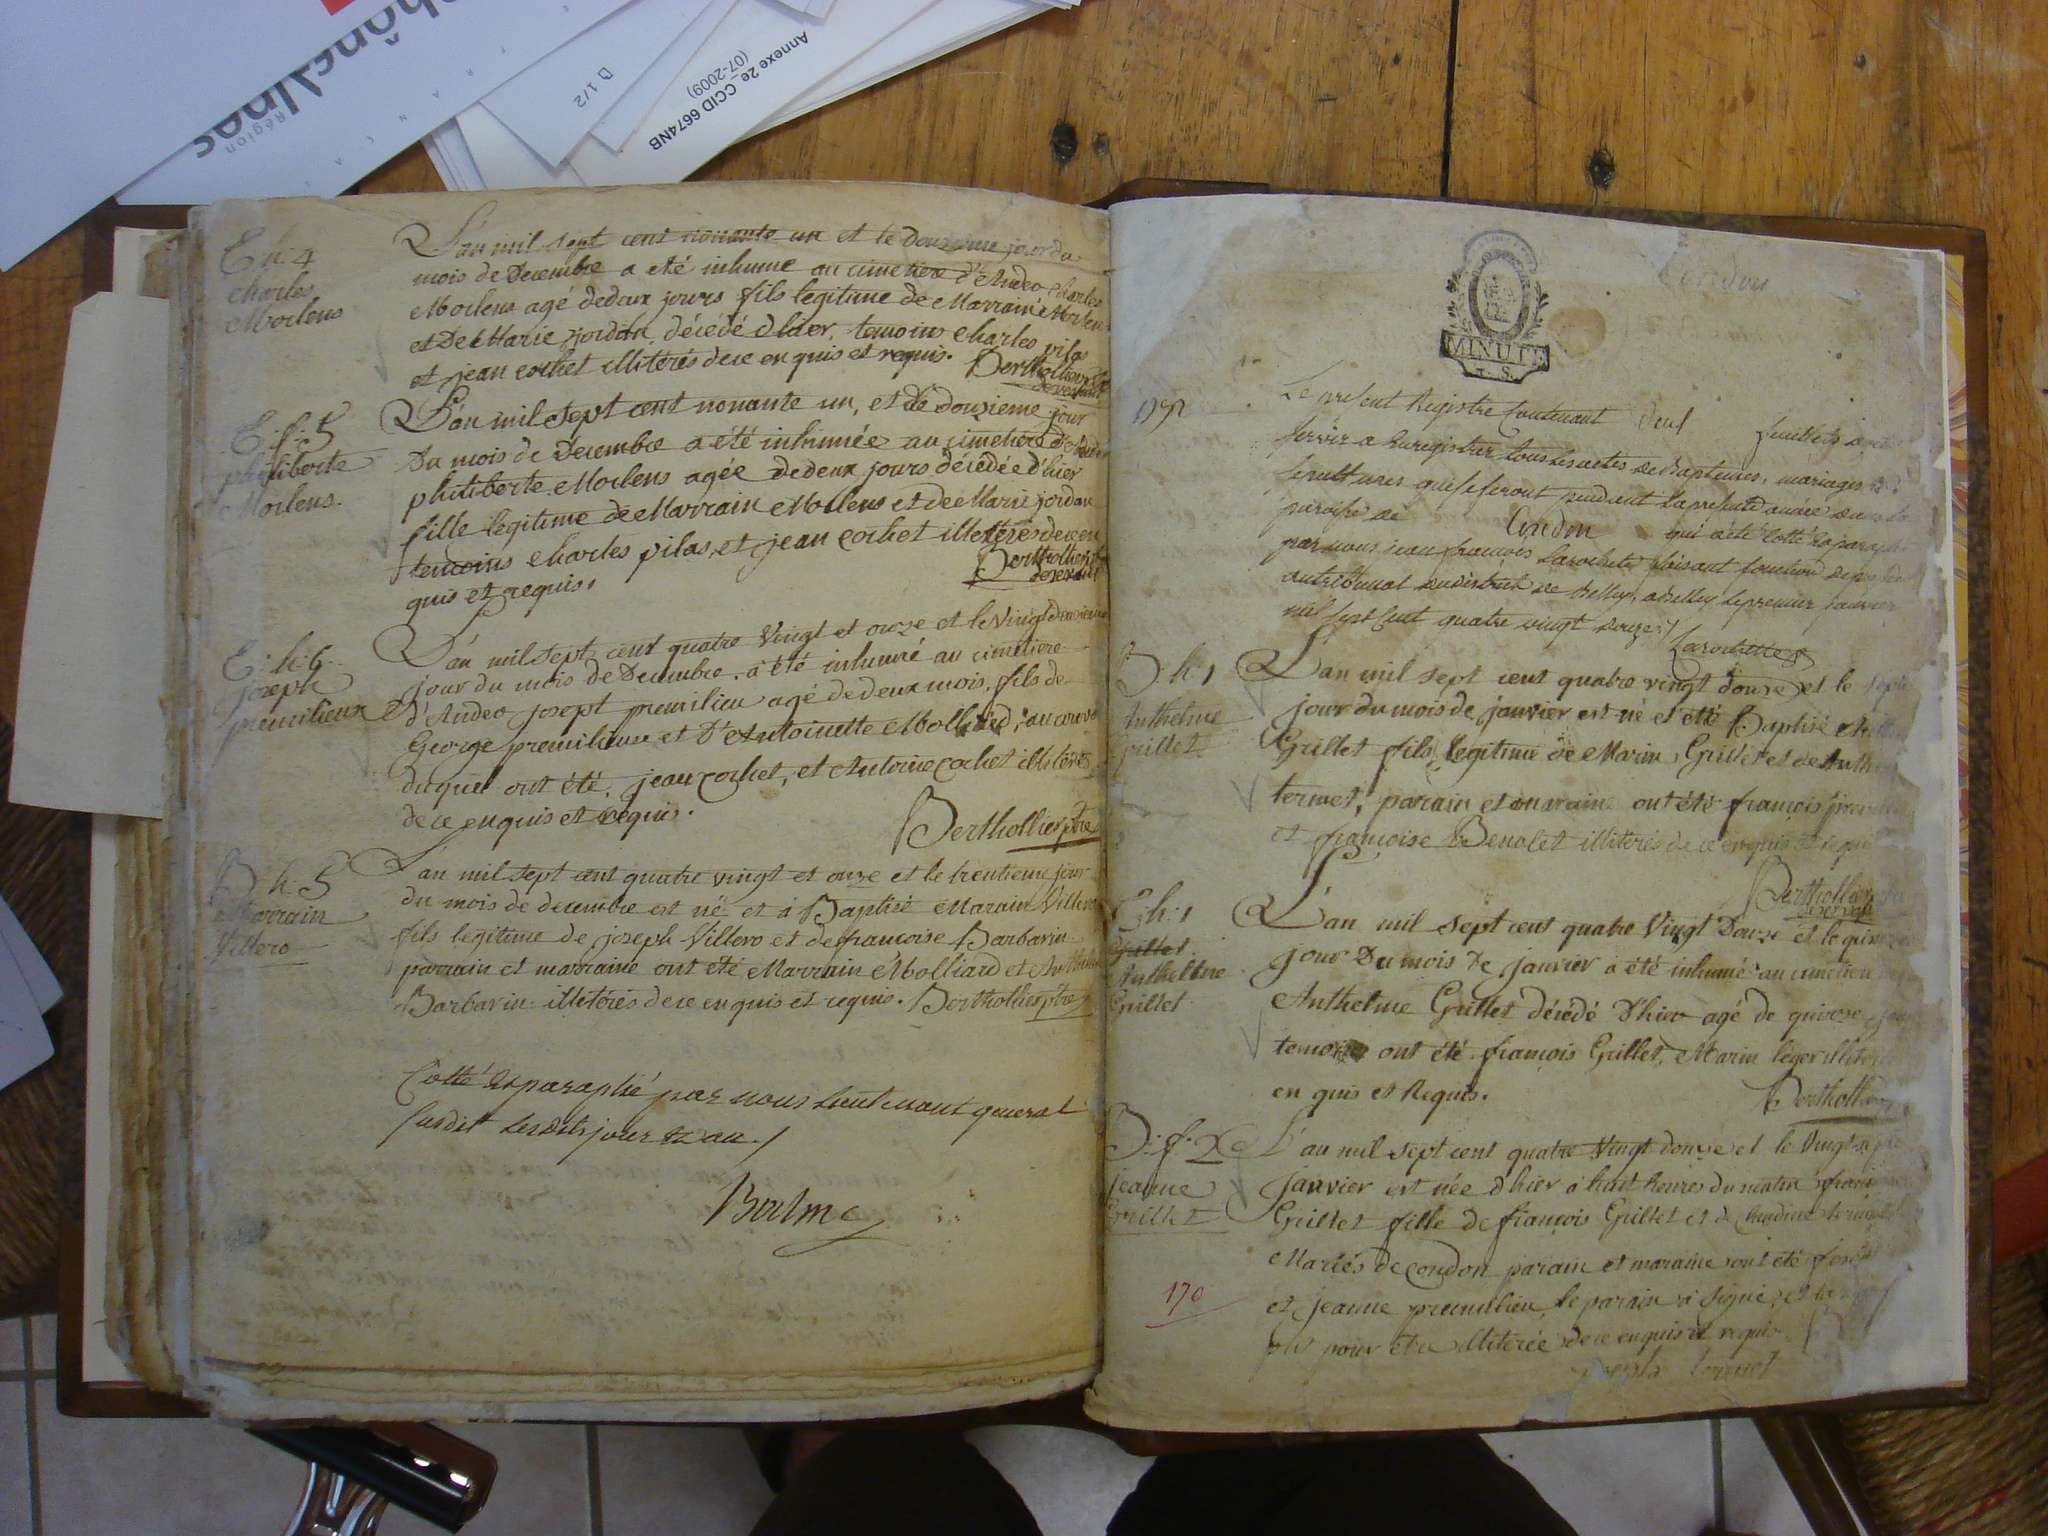 Rhône
Région
D 1/2
Annexe 2e_CCID 6674NB
(07-2009)
E. h. 4
Charles
Morlens
L'an mil sept cent nonante un et le douzieme jour du
mois de Decembre a eté inhume au cimetiere d'Andeo Charles
Morlens agé de deux jours fils legitime de Marrain Morlens
et De Marie jordan, décédé d'hier, temoins Charles pilas
et jean cochet illiterés de ce en quis et requis. Berthollier
desservant
E. f. 5
philiberte
Morlens.
L'an mil sept cent nonante un, et le douzieme jour
Du mois de Decembre a été inhumée au cimetiere d'Andeo
philiberte Morlens agée de deux jours décédée d'hier
fille legitime de Marrain Morlens et de Marie jordan
temoins Charles pilas, et jean cochet illeterés de ce en
quis et requis.
Berthollier
desservant
E. h. 6
joseph
premilieux
L'an mil sept cent quatre Vingt et onze et le Vingt
jour du mois de Decembre a été inhumé au cimetiere
d'Andeo josept premilieu agé de deux mois, fils de
George premilieux et D'Antoinette Molliard, au convoi
duquel ont été, jean cochet, et Antoine cochet illiterés
de ce enquis et requis.
Berthollier ptre
B. h. 5
Marrain
Villero
L'an mil sept cent quatre vingt et onze et le trentieme jour
du mois de decembre est né et à Baptisé Marain Villero
fils legitime de joseph Villero et de francoise Barbarin
parrain et marraine ont eté Marrain Molliard et
Barbarin illiterés de ce en quis et requis. Berthollier ptre
Cotté et paraphé par nous Lieutenant general
susdit lesdits jour et an ./
Balme
Condon
MINUTE
1792
Le present Registre Contenant Seul feuillets
servir a Enregistrer tous les actes de Baptemes, mariages &
sepultures qui se feront pendant la presente année dans la
paroisse de Condon qui a été Cotté et paraphé
par nous jean francois Larochette faisant fonction de
au tribunal du district de Belley, a Belley le premier janvier
mil sept Cent quatre vingt douze ./
Larochette
B. h. 1
Anthelme
Grillet
L'an mil sept cent quatre vingt douze et le
jour du mois de janvier est né et été Baptisé
Grillet fils legitime de Marin Grillet et de
termet, parain et maraine ont été françois
et françoise Benolet illiterés de ce enquis et requis
Berthollier
desservant
E. h. 1
Grillet
Anthelme
Grillet
L'an mil sept cent quatre Vingt Douze et le
jour Du mois De janvier à été inhumé au cimetiere
Anthelme Grillet décédé D'hier agé de quinze jours
temoins ont été françois Grillet, Marin leger
en quis et Requis.
Berthollier
B. f. 2
jeanne
Grillet
L'an mil sept cent quatre Vingt douze et le Vingt
janvier est née d'hier a huit heures du matin
Grillet fille de françois Grillet et de Claudine
Mariés de Condon parain et maraine ont été
et jeanne premilieu, le parain a signé, et
pour etre illiterée de ce enquis et requis
joseph termet
170